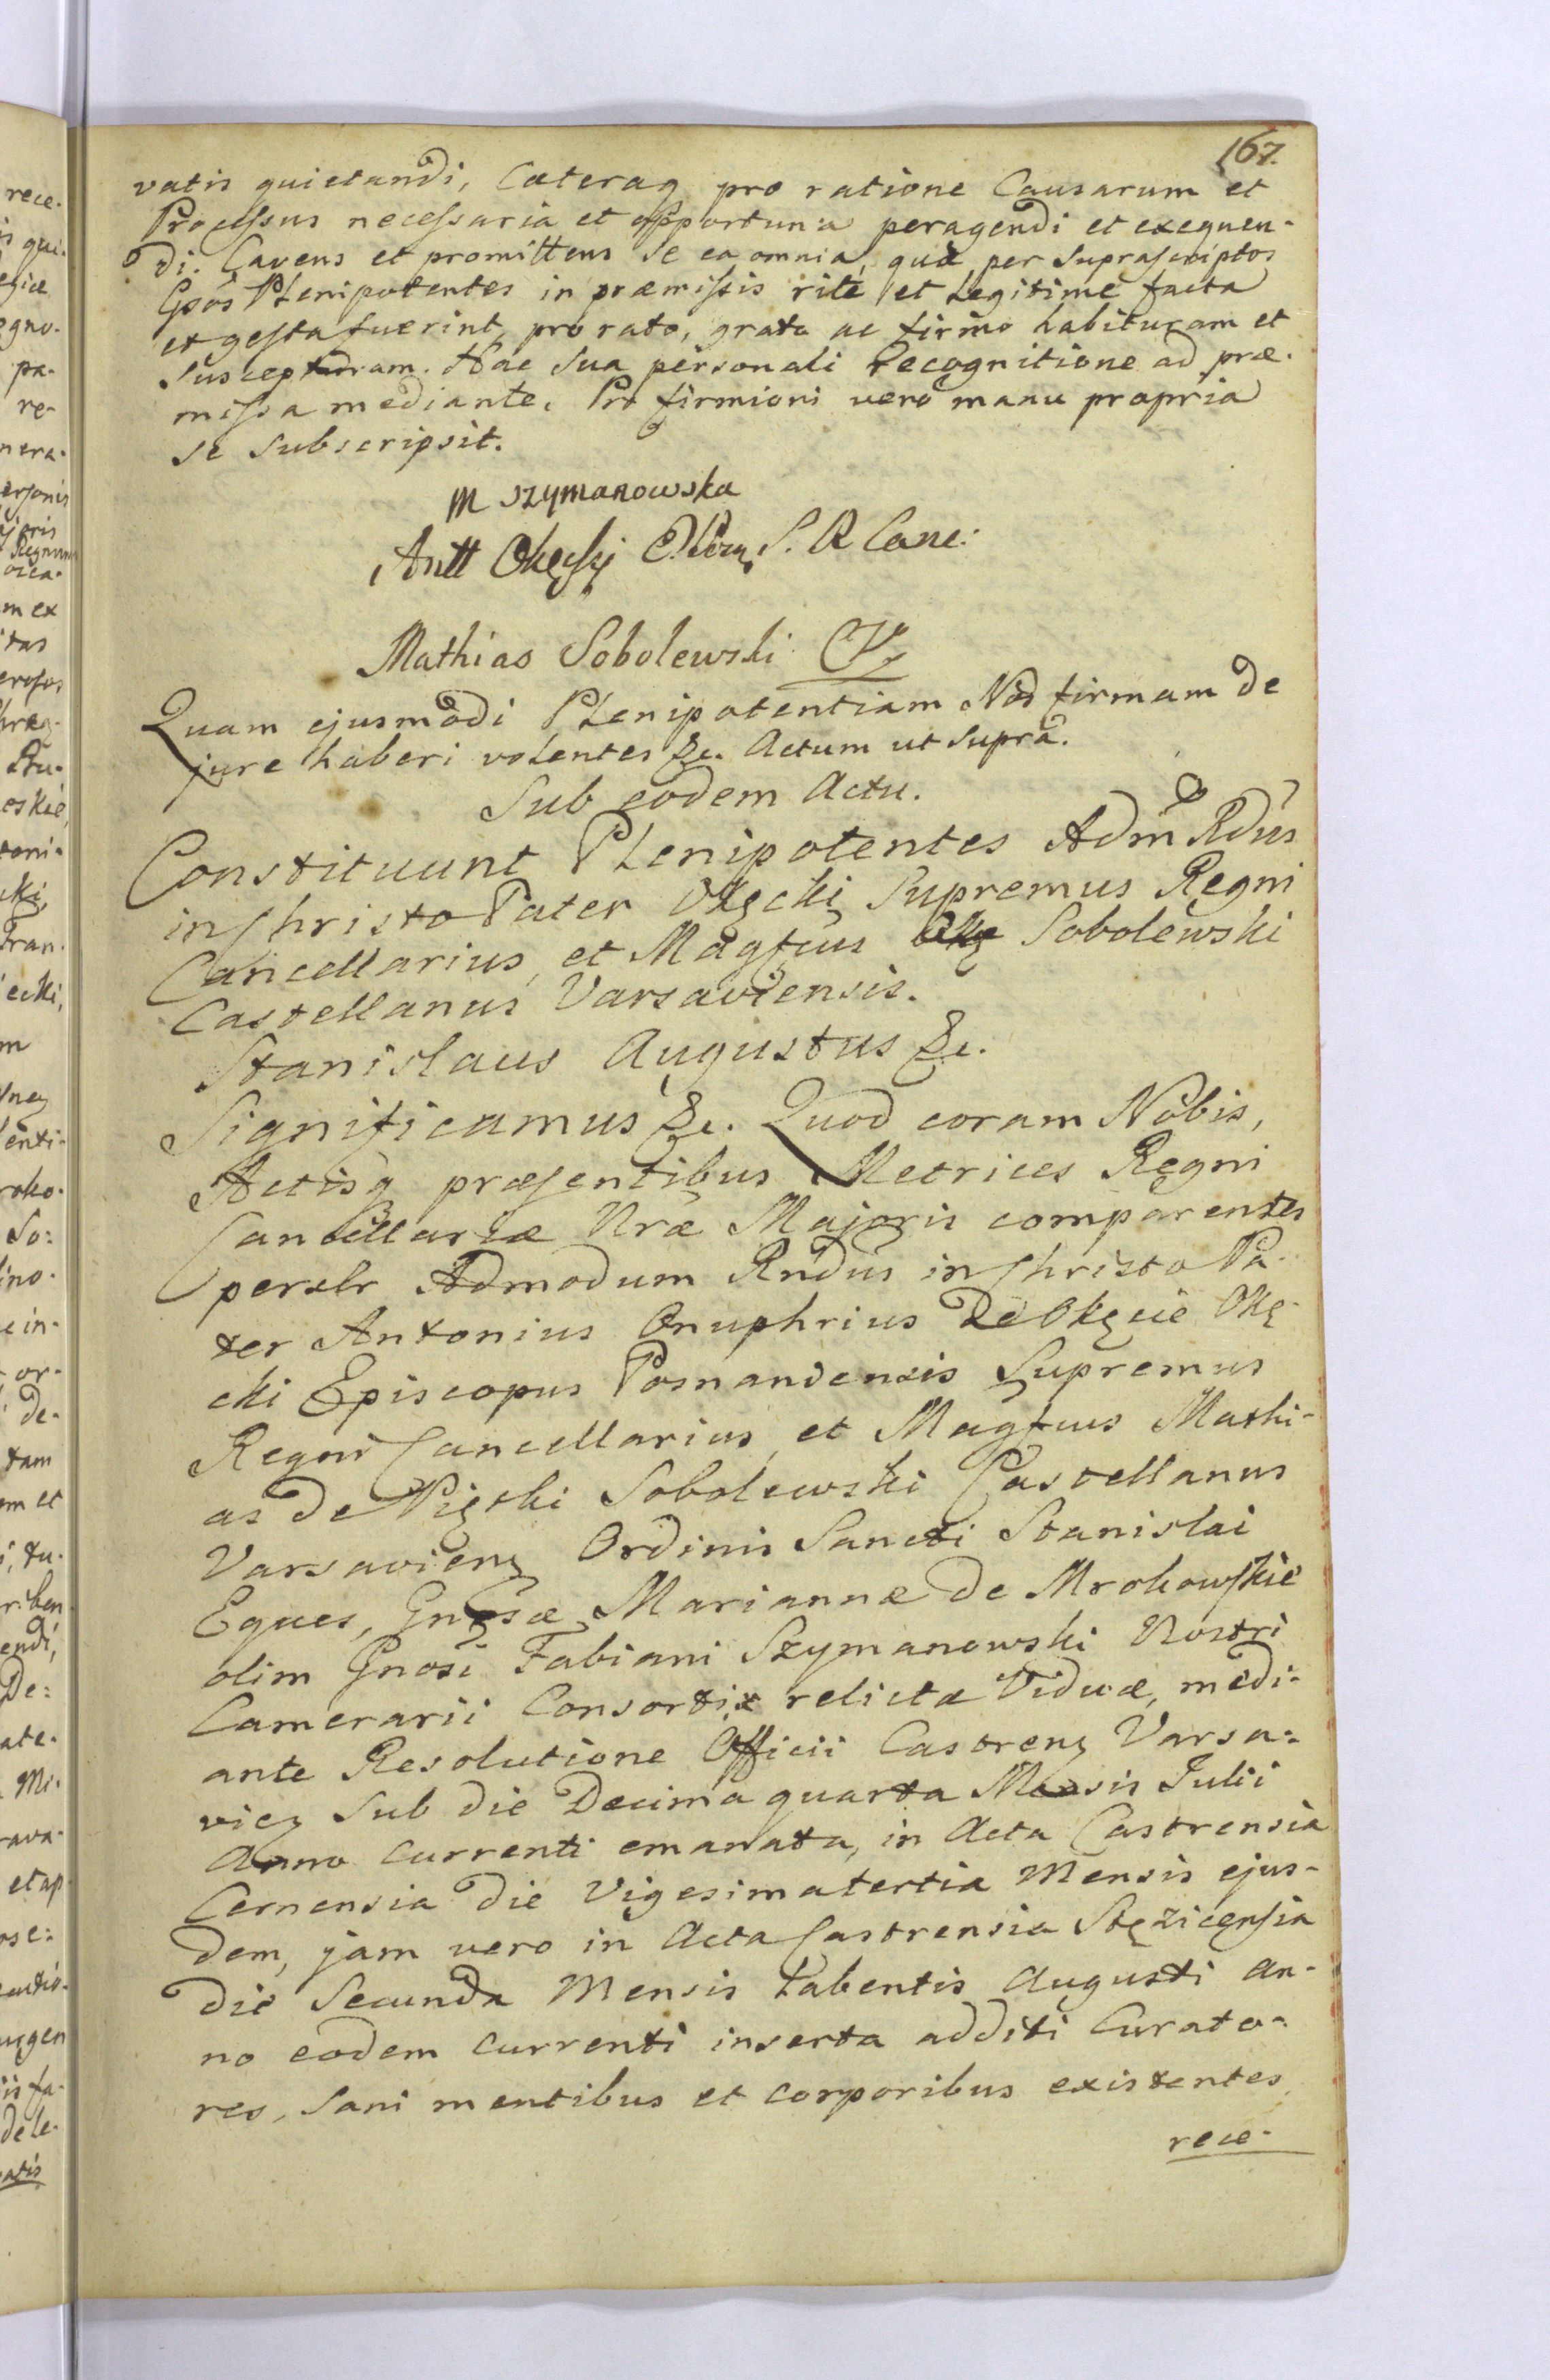 167.
vatis quietandi, Cæteraq pro ratione Causarum et
Processus necessaria et opportuna peragendi et exequen-
di. Cavens et promittens se ea omnia, quæ per suprascriptos
Gsos Plenipotentes in præmissis rite et Legitime facta
et gesta fuerint, pro rato, grato ac firmo habituram et
suscepturam. Hac sua personali Recognitione ad præ-
missa mediante. Pro firmiori vero manu propria
se subscripsit.
M szymanowska
Antt Okęcki S. R Canc:
Mathias Sobolewski
Quam ejusmodi Plenipotentiam Nos firmam de
jure haberi volentes &c. Actum ut supra.
Sub eodem Actu.
Constituunt Plenipotentes Adm Rdus
in Christo Pater Okęcki Supremus Regni
Cancellarius, et Magfcus Sobolewski
Castellanus Varsaviensis.
Stanislaus Augustus &c.
Significamus &c. Quod coram Nobis,
Actisq præsentibus Metrices Regni
Cancellariæ Nræ Majoris comparentes
perslr Admodum Rndus in Christo Pa-
ter Antonius Onuphrius De Okęcie Okę-
cki Episcopus Posnaniensis Supremus
Regni Cancellarius, et Magfcus Mathi-
as de Piętki Sobolewski Castellanus
Varsavien Ordinis Sancti Stanislai
Eques, Gnosæ Mariannæ de Mrokowskie
olim Gnosi Fabiani Szymanowski Nostri
Camerarii Consortis relictæ Viduæ, medi-
ante Resolutione Officii Castren Varsa-
vien sub die Decima quarta Mensis Julii
Anno Currenti emanata, in Acta Castrensia
Cernensia die Vigesimatertia Mensis ejus-
dem, jam vero in Acta Castrensia Stęzicensia
die Secunda Mensis Labentis Augusti an-
no eodem currenti inserta additi Curato-
res, Sani mentibus et corporibus existentes
rece-